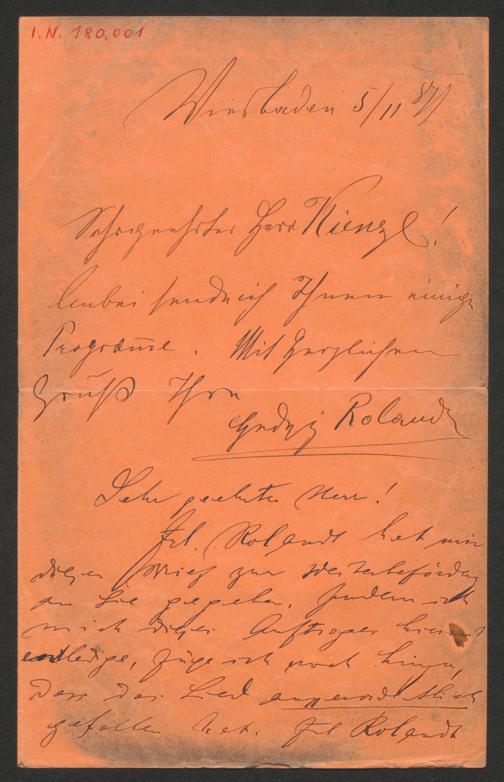 I.N. 180,001
Wiesbaden 5/11 87
Sehrgeehrter Herr Kienzl!
Anbei sende ich Ihnen einige
Programme. Mit herzlichem
Gruß Ihre
Hedwig Rolandt
Sehr geehrter Herr!
Frl. Rolandt hat mir
diesen Brief zur Weiterbeförderg
an Sie gegeben. Indem ich
mich dieses Auftrages hiermit
entledige, füge ich noch hinzu,
dass das Lied ausserordentlich
gefallen hat. Frl Rolandt